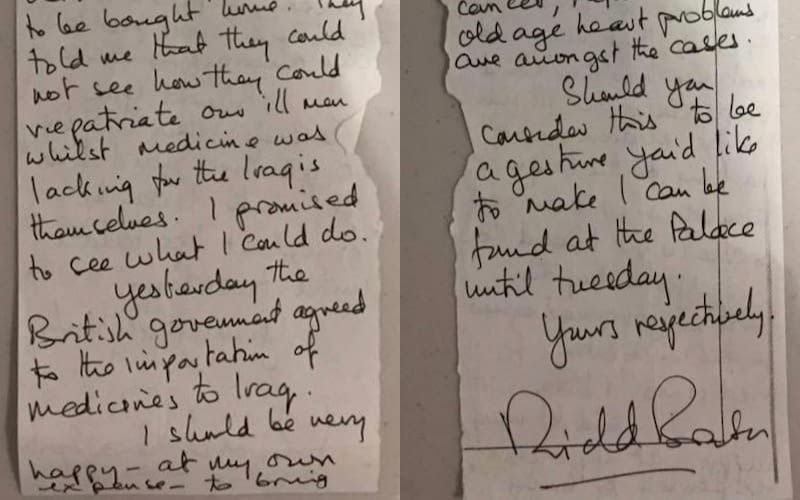 to be bought home. They
told me that they could
not see how they could
repatriate our ill men
whilst medicine was
lacking for the Iraqis
themselves. I promised
to see what I could do.
yesterday the
British goverment agreed
to the importation of
medicines to Iraq.
I should be very
happy - at my own
expense - to bring
cancer,
old age heart problems
are amongst the cases.
Should you
consider this to be
a gesture you'd like
to make I can be
found at the Palace
until tuesday.
Yours respectively.